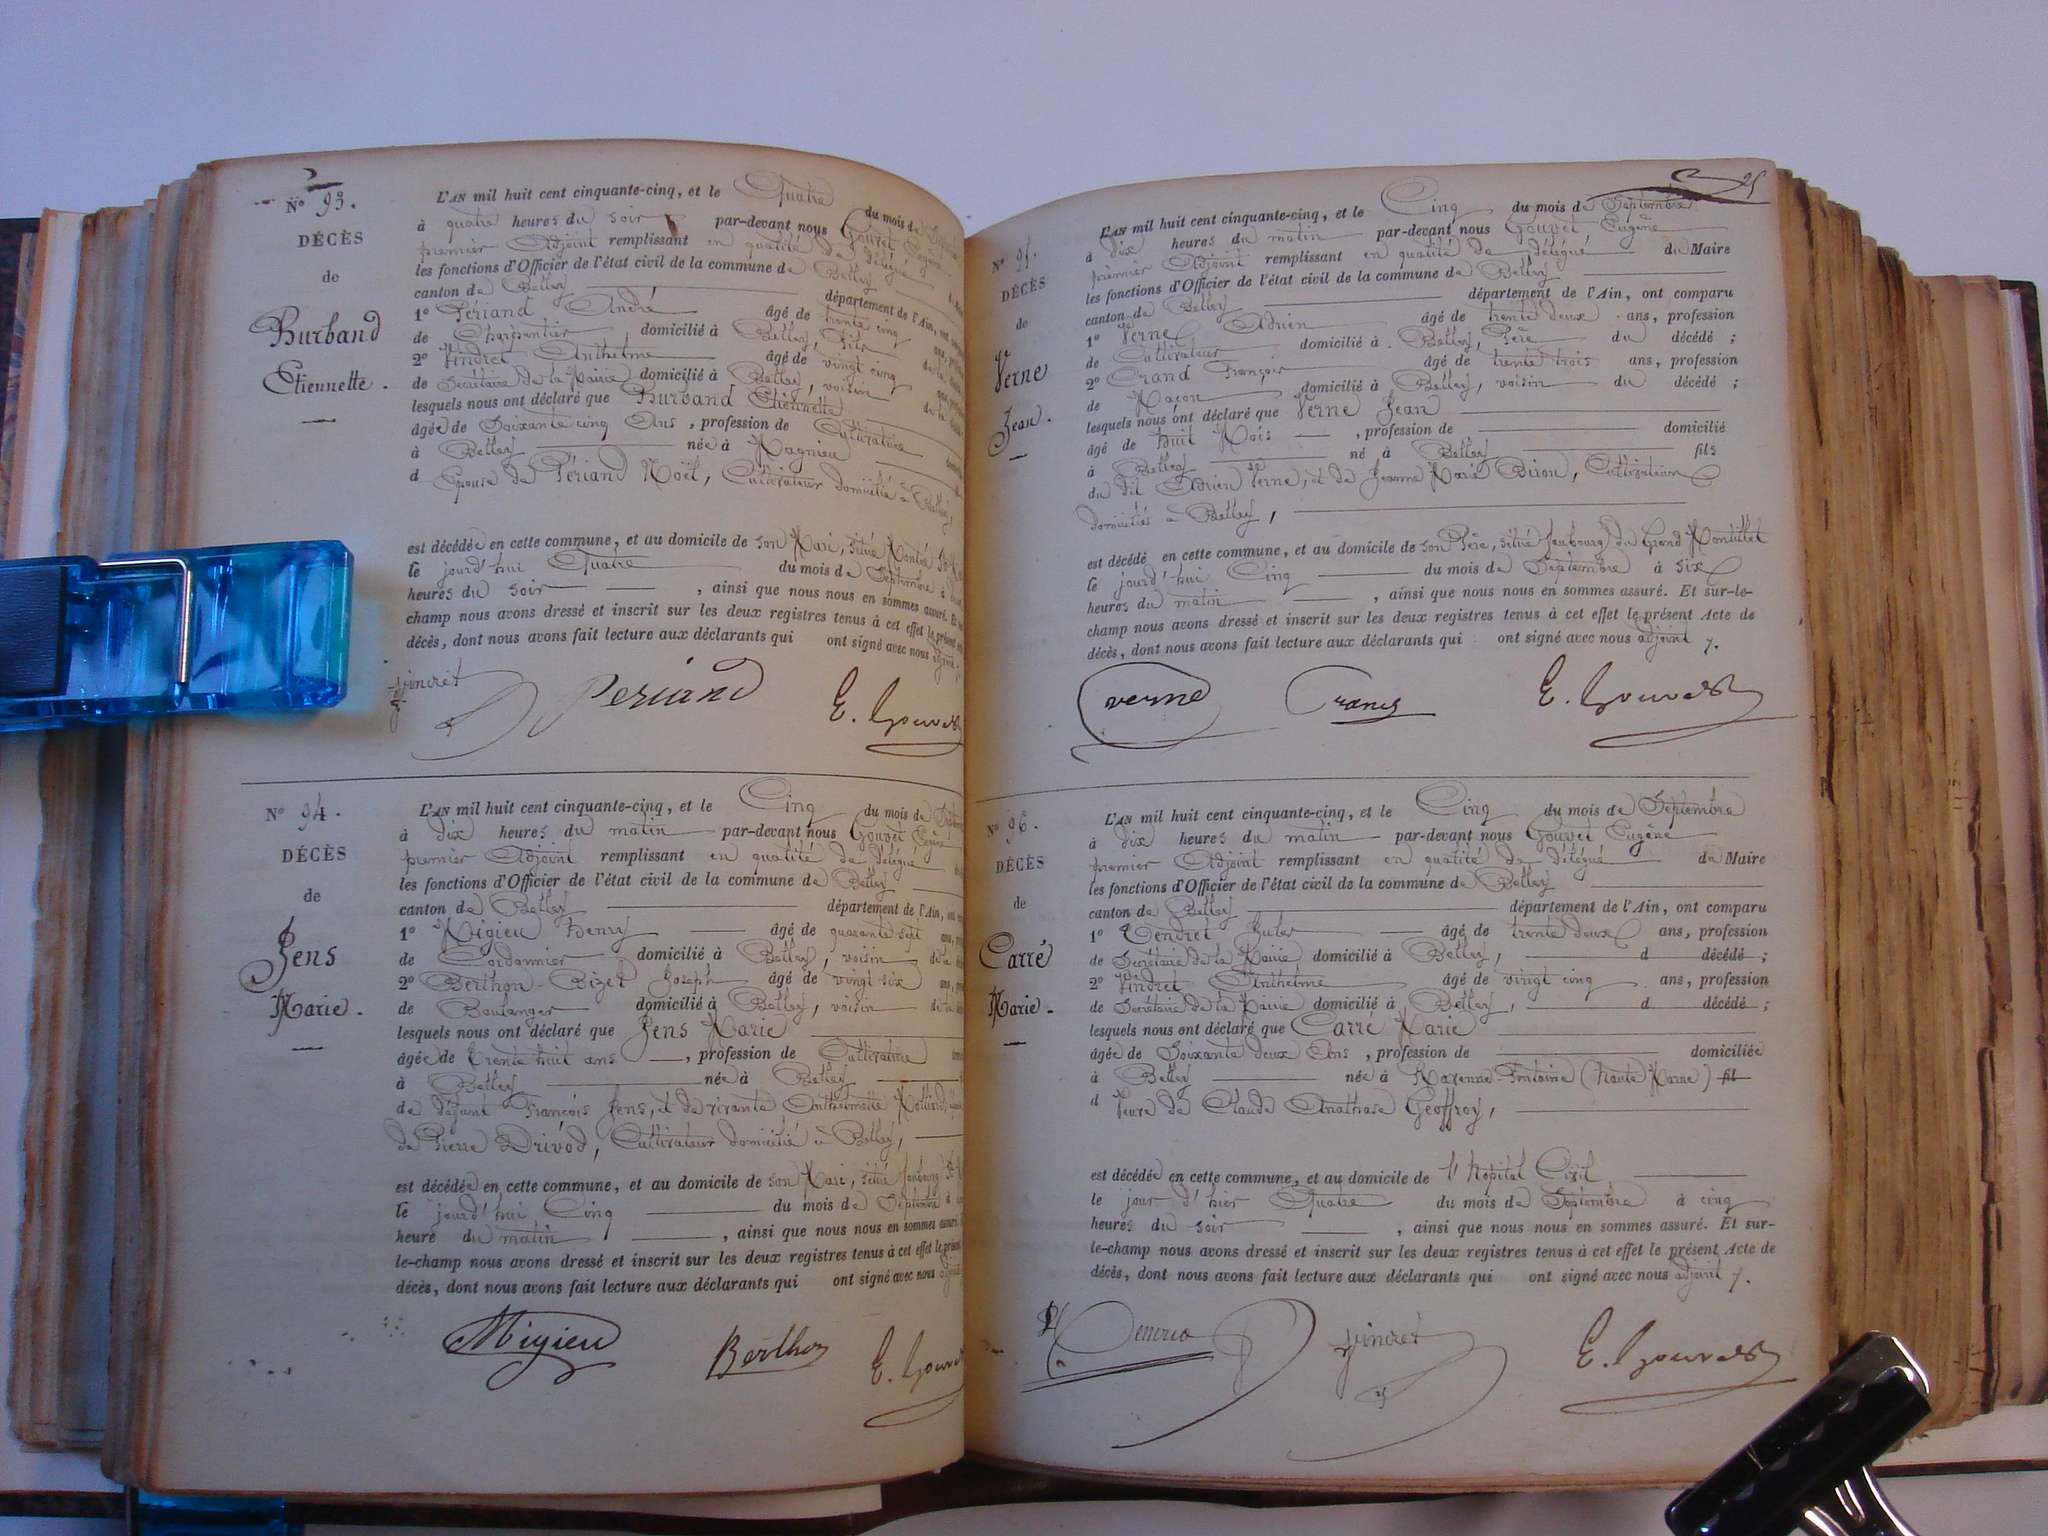 N° 93.
DÉCÈS
de
Burband
Etiennette.
L'AN mil huit cent cinquante-cinq, et le Quatre du mois de
à quatre heures du soir par-devant nous Gouvet Eugène
premier Adjoint remplissant en qualité de délégué
les fonctions d'Officier de l'état civil de la commune de Belley
canton de Belley département de l'Ain, ont
1° Périand André âgé de trente cinq
de Charpentier, domicilié à Belley, fils de la
2° Vindret Anthelme âgé de vingt cinq
de Secrétaire de la Mairie domicilié à Belley, voisin de la
lesquels nous ont déclaré que Burband Etiennette
âgée de Soixante cinq Ans, profession de Cultivatrice
à Belley née à Magnieu
d Epouse de Périand Noël, Cultivateur domicilié à Belley,
est décédée en cette commune, et au domicile de son Mari, situé
le jourd'hui Quatre du mois de Septembre à
heures du soir, ainsi que nous nous en sommes assuré. Et
champ nous avons dressé et inscrit sur les deux registres tenus à cet effet le présent
décès, dont nous avons fait lecture aux déclarants qui ont signé avec nous adjoint.
Vindret Periand E. Gouvet
N° 94.
DÉCÈS
de
Jens
Marie.
L'AN mil huit cent cinquante-cinq, et le Cinq du mois de
à dix heures du matin par-devant nous Gouvet Eugène
premier Adjoint remplissant en qualité de délégué
les fonctions d'Officier de l'état civil de la commune de Belley
canton de Belley département de l'Ain, ont
1° Migieu Henry âgé de quarante sept ans,
de Cordonnier domicilié à Belley, voisin de la
2° Berthon-Bizet Joseph âgé de vingt six ans,
de Boulanger domicilié à Belley, voisin de la
lesquels nous ont déclaré que Jens Marie
âgée de trente huit ans, profession de Cultivatrice
à Belley née à Belley
de défunt François Jens, et de vivante Anthelmette
de Pierre Drivod, Cultivateur domicilié à Belley,
est décédée en cette commune, et au domicile de son Mari, situé faubourg
le jourd'hui Cinq du mois de Septembre à
heure du matin, ainsi que nous nous en sommes assuré.
le-champ nous avons dressé et inscrit sur les deux registres tenus à cet effet le présent
décès, dont nous avons fait lecture aux déclarants qui ont signé avec nous adjoint
Migieu Berthon E. Gouvet
N° 95.
DÉCÈS
de
Verne
Jean.
L'AN mil huit cent cinquante-cinq, et le Cinq du mois de Septembre
à dix heures du matin par-devant nous Gouvet Eugène
premier Adjoint remplissant en qualité de délégué du Maire
les fonctions d'Officier de l'état civil de la commune de Belley
canton de Belley département de l'Ain, ont comparu
1° Verne Adrien âgé de trente deux ans, profession
de Cultivateur domicilié à Belley, Père du décédé;
2° Crand François âgé de trente trois ans, profession
de Maçon domicilié à Belley, voisin du décédé;
lesquels nous ont déclaré que Verne Jean
âgé de huit Mois, profession de domicilié
à Belley né à Belley fils
du dit Adrien Verne, et de Jeanne Marie Biron, Cultivateurs
domiciliés à Belley,
est décédé en cette commune, et au domicile de son Père, situé faubourg du Grand Montillet
le jourd'hui Cinq du mois de Septembre à six
heures du matin, ainsi que nous nous en sommes assuré. Et sur-le-
champ nous avons dressé et inscrit sur les deux registres tenus à cet effet le présent Acte de
décès, dont nous avons fait lecture aux déclarants qui ont signé avec nous adjoint.
verne E. Gouvet
N° 96.
DÉCÈS
de
Carré
Marie.
L'AN mil huit cent cinquante-cinq, et le Cinq du mois de Septembre
à dix heures du matin par-devant nous Gouvet Eugène
premier Adjoint remplissant en qualité de délégué du Maire
les fonctions d'Officier de l'état civil de la commune de Belley
canton de Belley département de l'Ain, ont comparu
1° Tendret Jules âgé de trente deux ans, profession
de Secrétaire de la Mairie domicilié à Belley, d décédé;
2° Vindret Anthelme âgé de vingt cinq ans, profession
de Secrétaire de la Mairie domicilié à Belley, d décédé;
lesquels nous ont déclaré que Carré Marie
âgée de Soixante deux Ans, profession de domiciliée
à Belley née à Marenne-Fontaine (Haute Marne) fil
d Veuve de Claude Anathase Geoffroy,
est décédée en cette commune, et au domicile de l'Hopital Civil
le jour d'hier Quatre du mois de Septembre à cinq
heures du soir, ainsi que nous nous en sommes assuré. Et sur-
le-champ nous avons dressé et inscrit sur les deux registres tenus à cet effet le présent Acte de
décès, dont nous avons fait lecture aux déclarants qui ont signé avec nous adjoint.
Vindret E. Gouvet